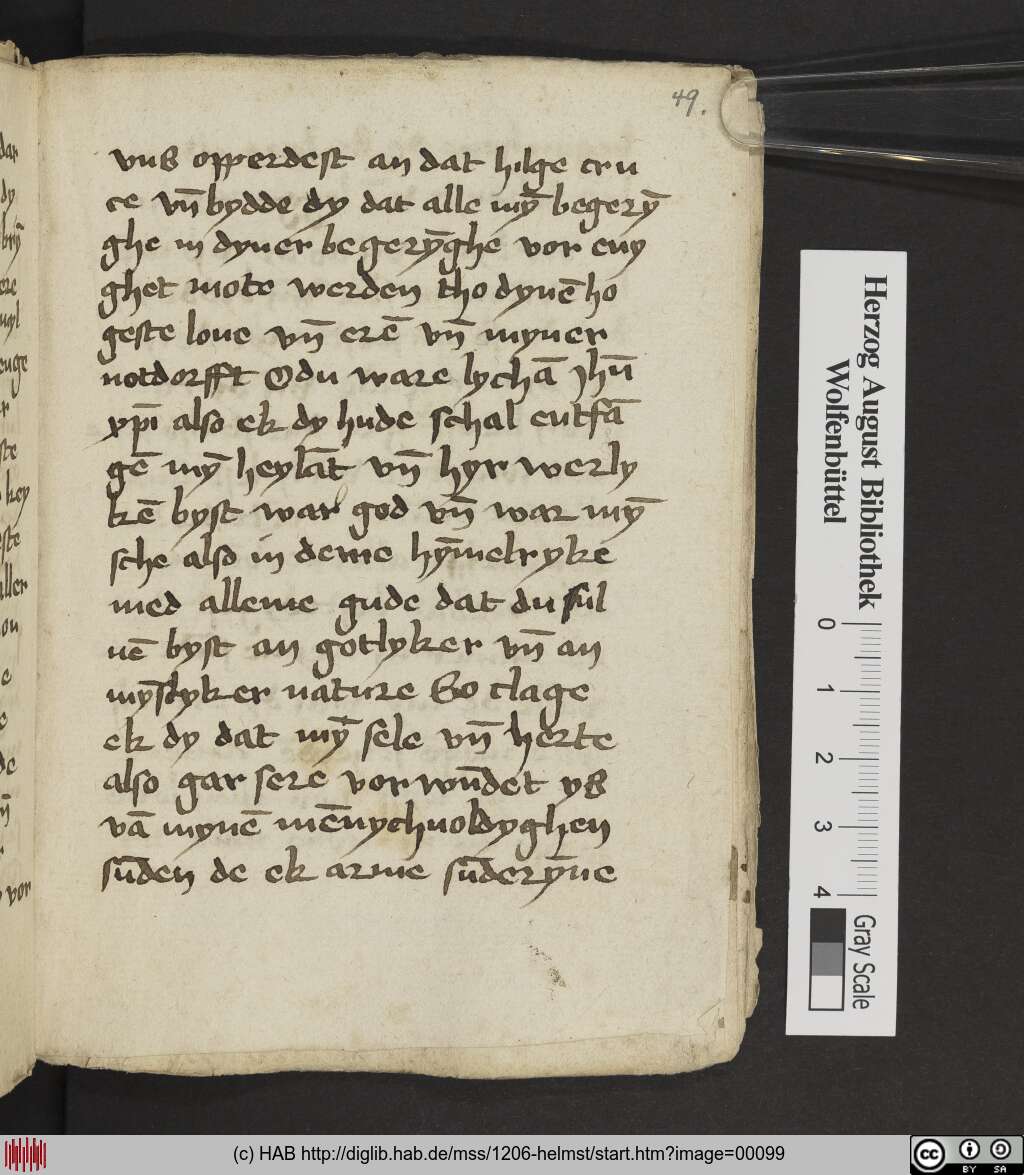 49.
vns opperdest an dat hilge cru
ce vn̄ bydde dy dat alle my̅ begery̅
ghe in dyner begery̅ghe vor eny
ghet mote werden tho dynē ho
geste loue vn̄ erē vn̄ myner
notdorfft O du ware lychā Jhū
xp̄i also ek dy hude schal entfā
gē my̅ heylāt vn̄ hyr werly
kē byst war god vn̄ war my̅
sche also in deme hy̅melryke
med alleme gude dat du sul
uē byst an gotlyker vn̄ an
my̅slyker nature So clage
ek dy dat my̅ sele vn̄ herte
also gar sere vorwūdet ys
vā mynē mēnychuoldyghen
sūden de ek arme sūdery̅ne
Herzog August Bibliothek
Wolfenbüttel
0
1
2
3
4
Gray Scale
(c) HAB http://diglib.hab.de/mss/1206-helmst/start.htm?image=00099
cc
BY SA